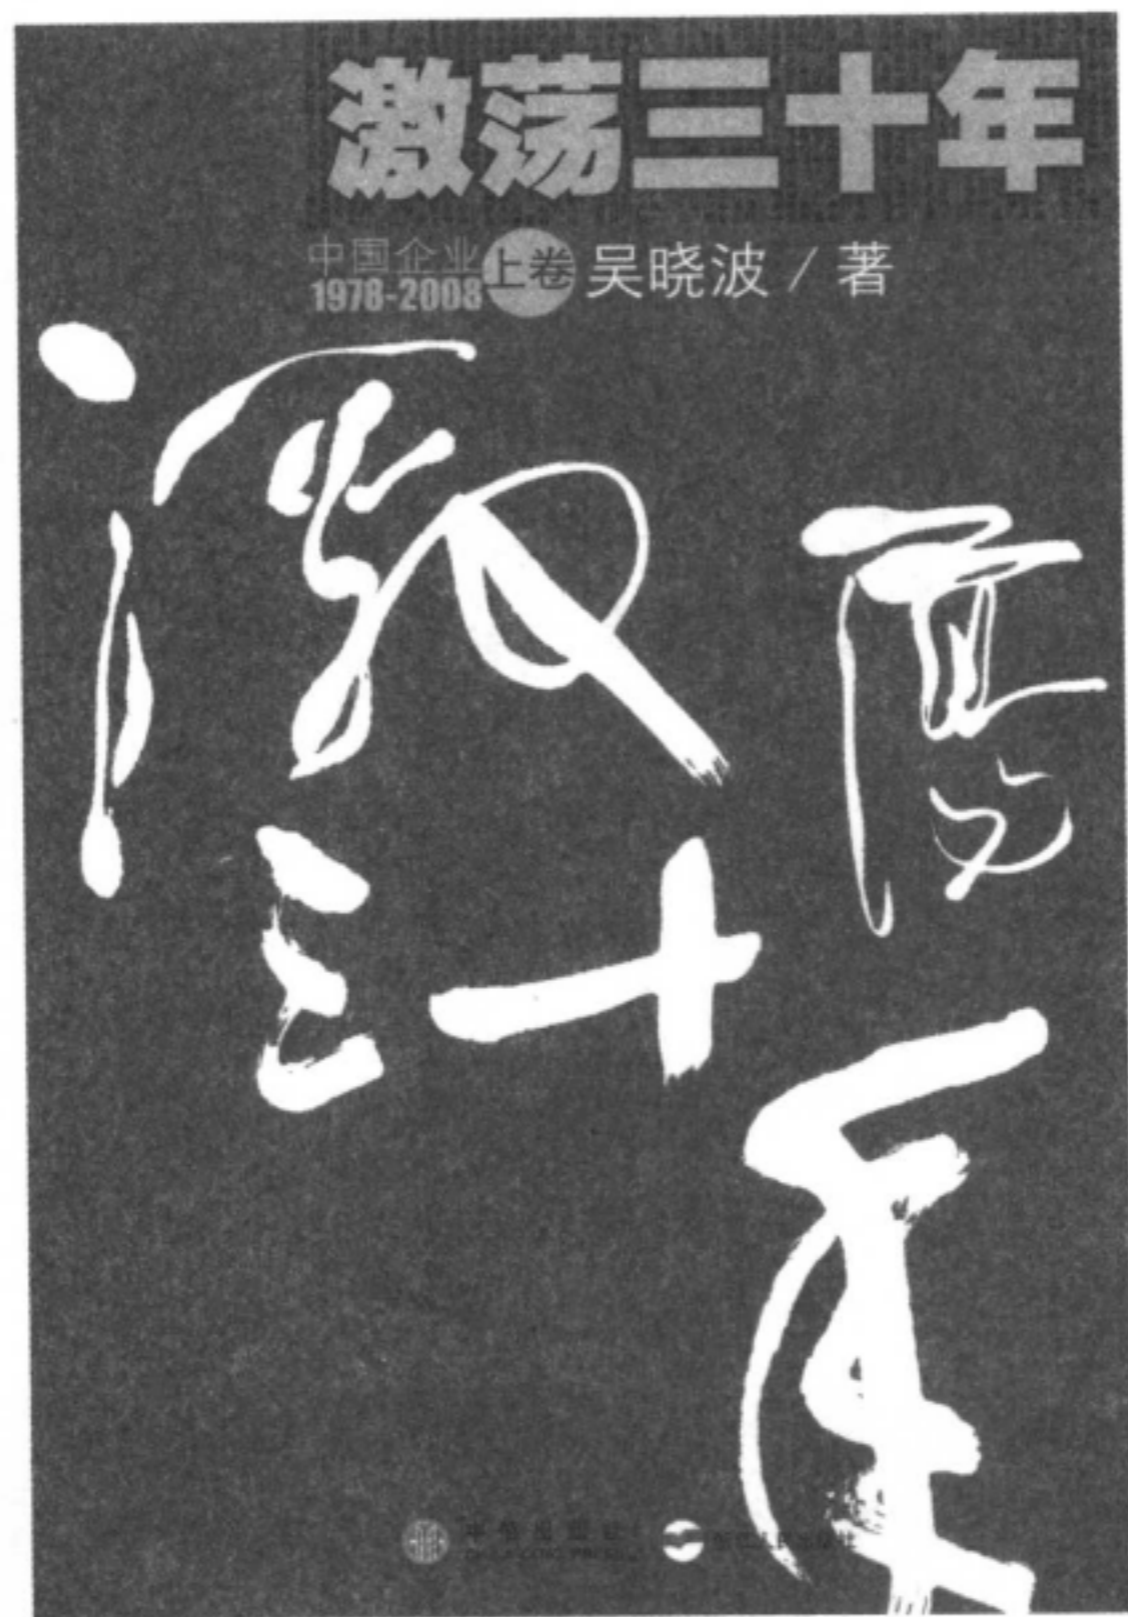 激荡三十年
中国企业
1978-2008
上卷
吴晓波/著
激荡
三十年